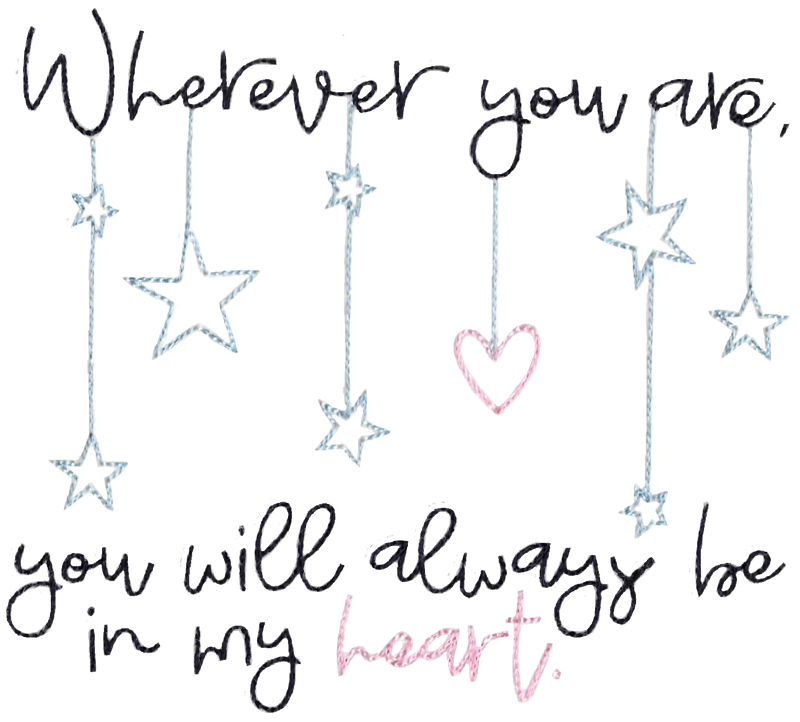 Wherever you are,
you will always be
in my heart.